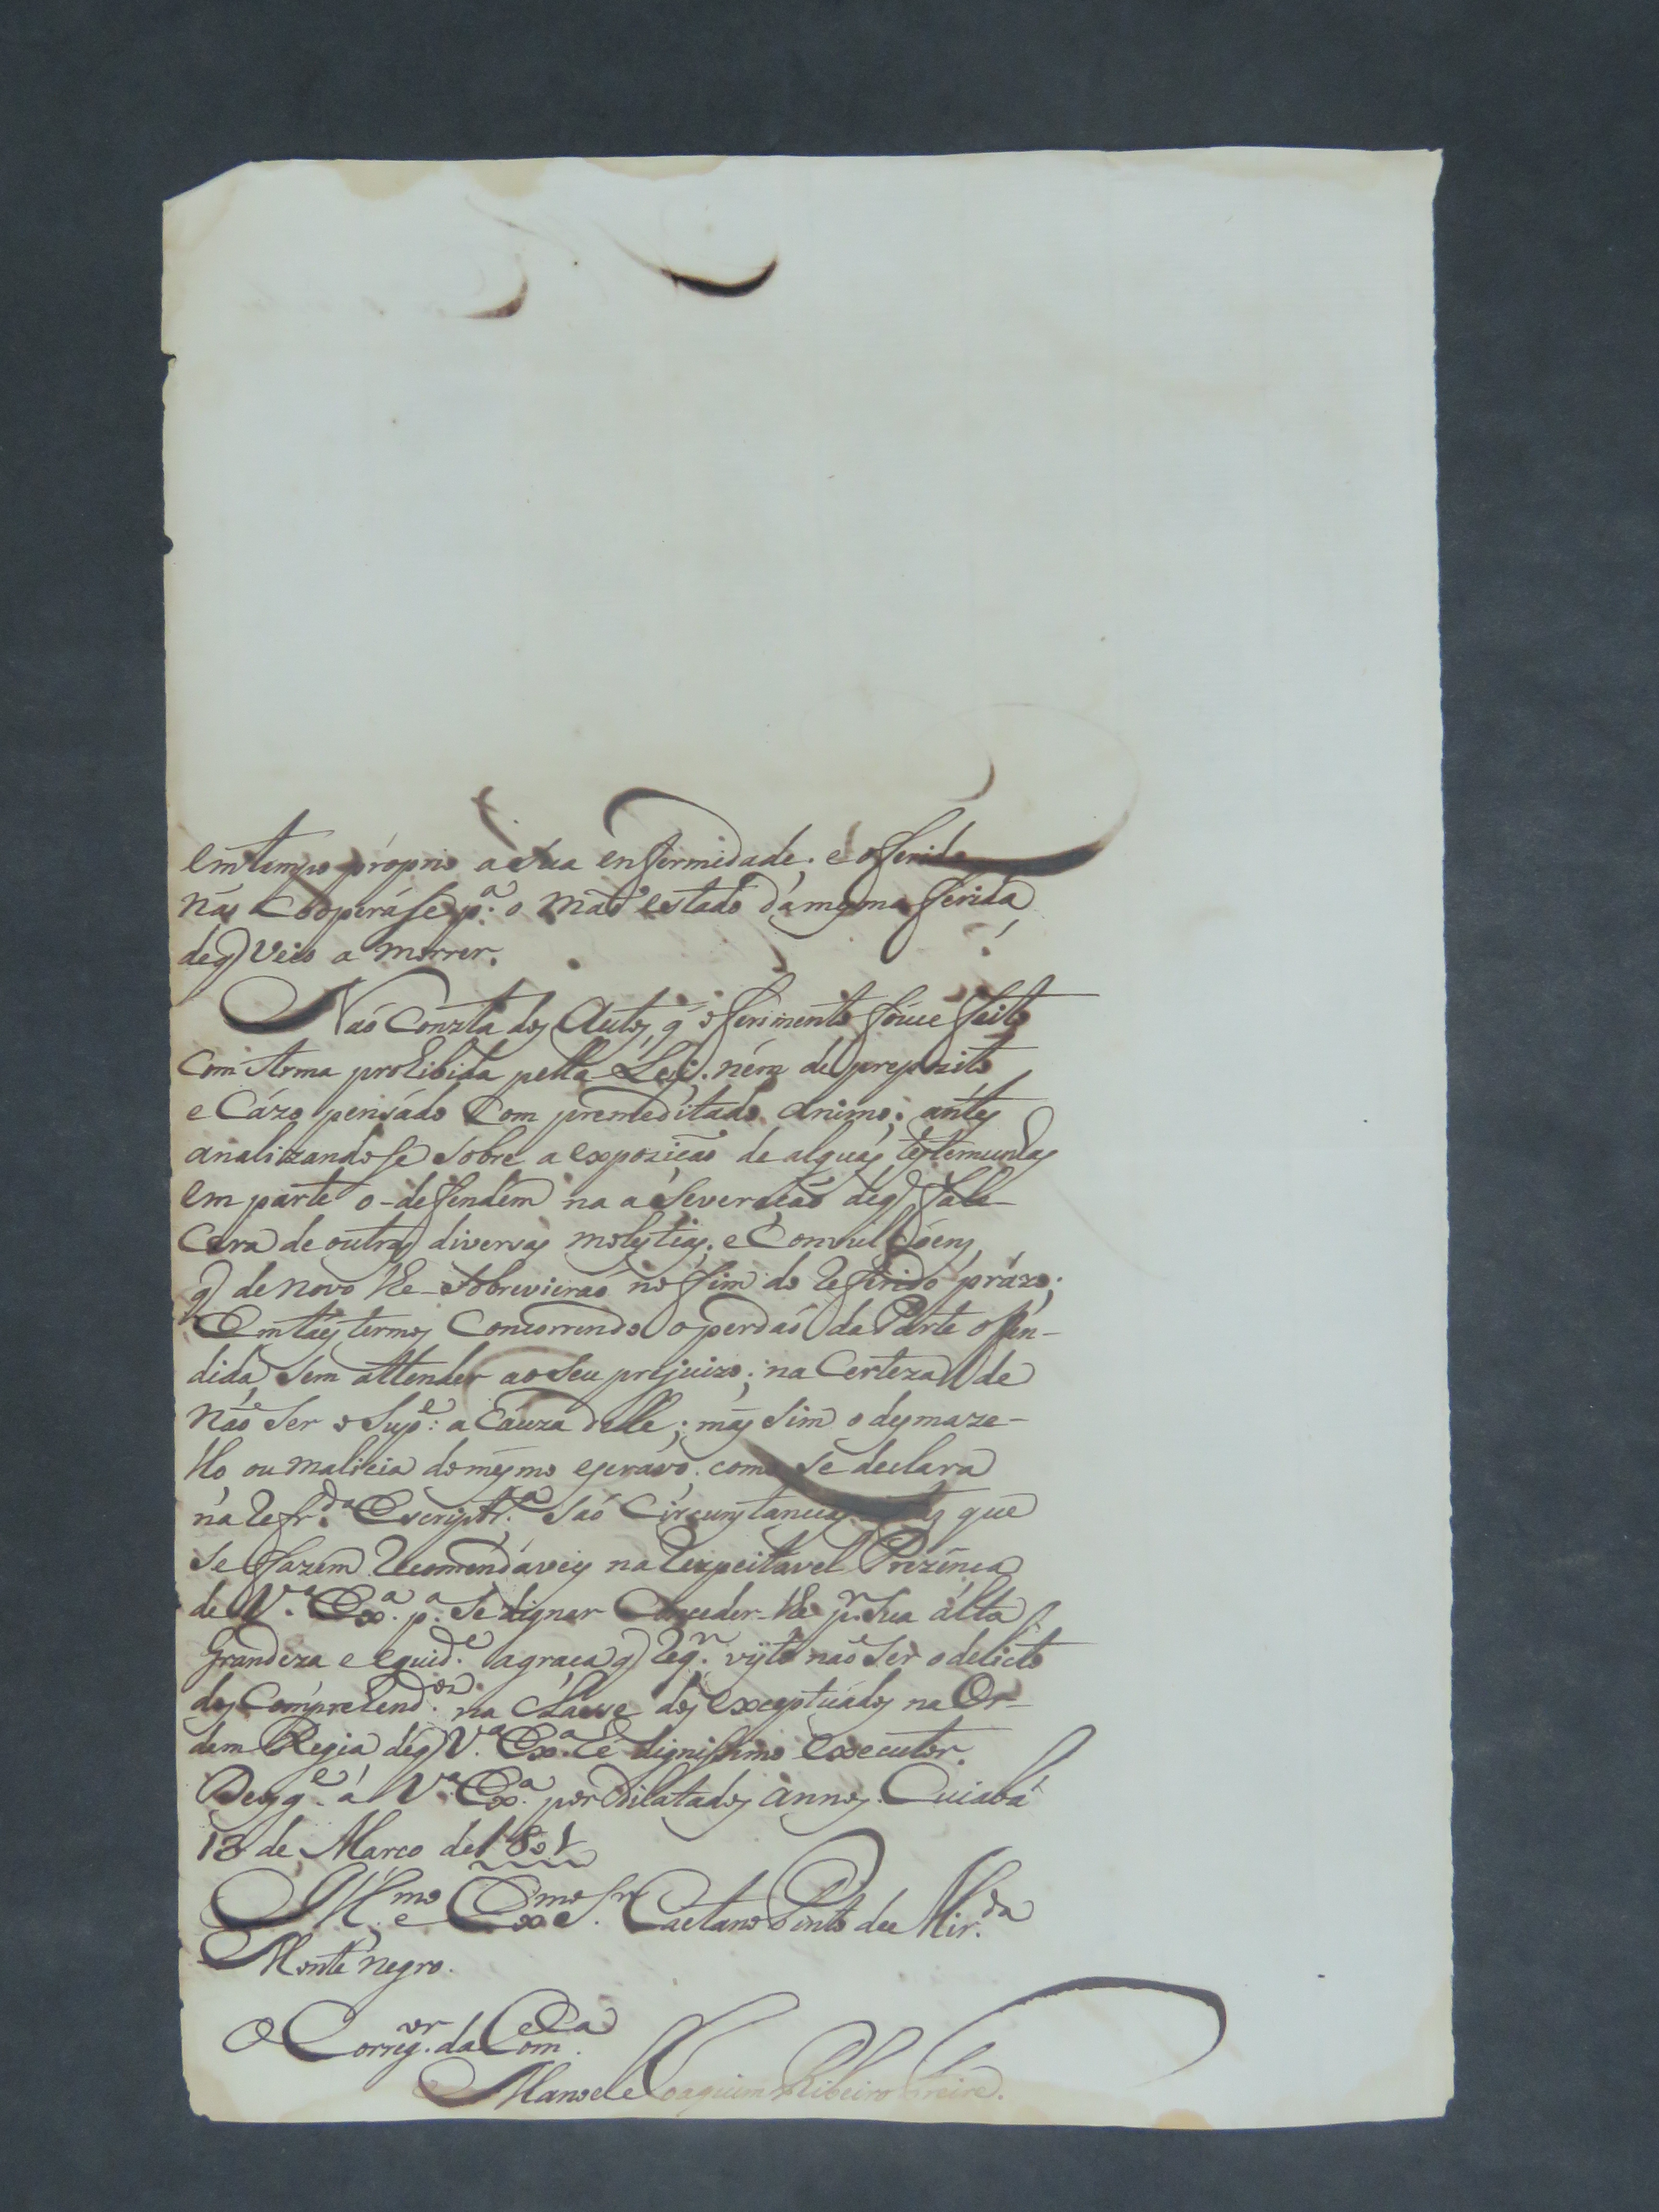 em tempo próprio a sua enfermidade; e o ferido
não Cooperáse p.ª o máo estado da mesma ferida
deq Veio a morrer.
Não Consta dos Autos, q̃ o ferimento fouce feito
com Arma prohibida pella Ley; nem de prepozito
e Cázo pensádo Com premeditado animo; antes
analizandose Sobre a expozicão de alguãs testemunhas
em parte o-defendem na aSeveração deq fale-
Cera de outras diversas molestias; e Convulçõens
q de novo lhe-Sobrevierão no fim do Referido prázo;
Em taes termos Concorrendo o perdão da Parte offen-
dida, Sem attender ao Seu prejuizo; na Certeza de
Não Ser o Sup.e a Cauza delle; mas Sim o desmaze-
llo, ou malicia do mesmo escravo; como Se declara
na Refr.da Escript.ra São Circunstancias que
Se fazem Recomendáveis na Respeitavel Prezença
de V.ª Ex.ª p.ª Se dignar Conceder-lhe p.r Sua álta
Grandeza e equid.e a graça q Req.r visto não Ser o delicto
dos Comprehend.os na Classe dos exceptuádos na Or-
dem Regia deq V.ª Ex.ª hé dignissimo executor.
Deos g.e á V.ª Ex.ª por dilatados annos. Cuiabá
13 de Março de 1801
Ill.mo e Ex.mo Sr. Caetano Pinto de Mir.da
Monte negro.
O Correg.or da Com.ca
Manoel Joaquim Ribeiro Freire.